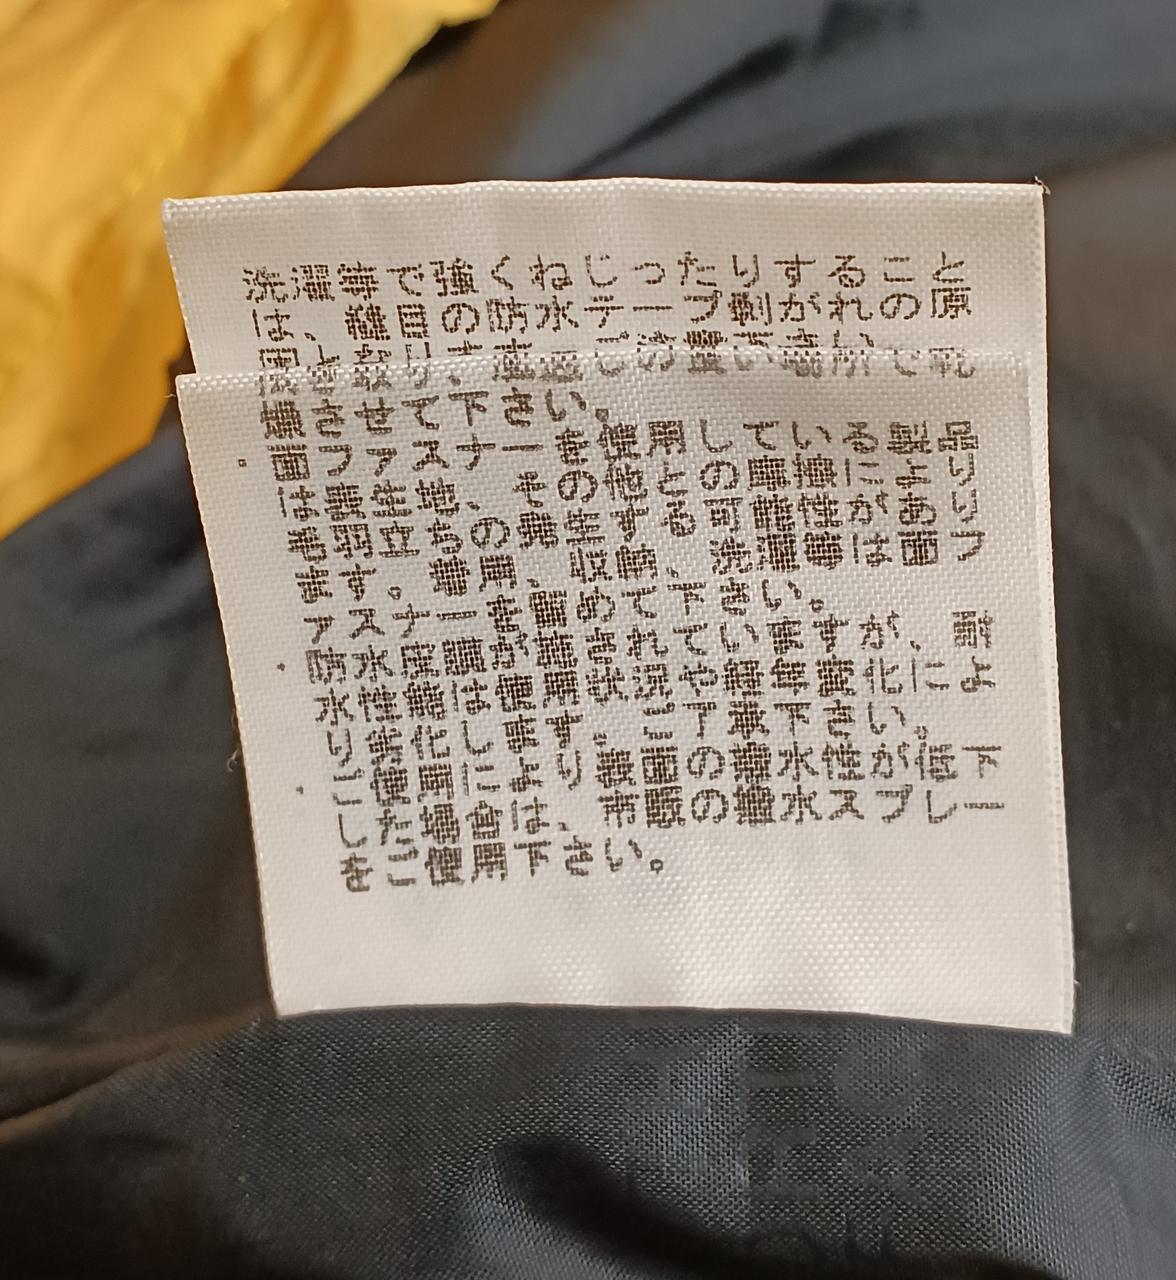 洗濯等で強くねじったりすること
は、縫目の防水テープ剥がれの原
し の い場所で乾
燥させて下さい。
・面ファスナーを使用している製品
は表生地、その他との摩擦により
毛羽立ちの発生する可能性があり
ます。着用、収納、洗濯等は面フ
ァスナーを留めて下さい。
・防水 が施されていますが、耐
水性能は使用状況や経年変化によ
り劣化します。ご了承下さい。
・ご使用により表面の撥水性が低下
した場合は、市販の撥水スプレー
をご使用下さい。